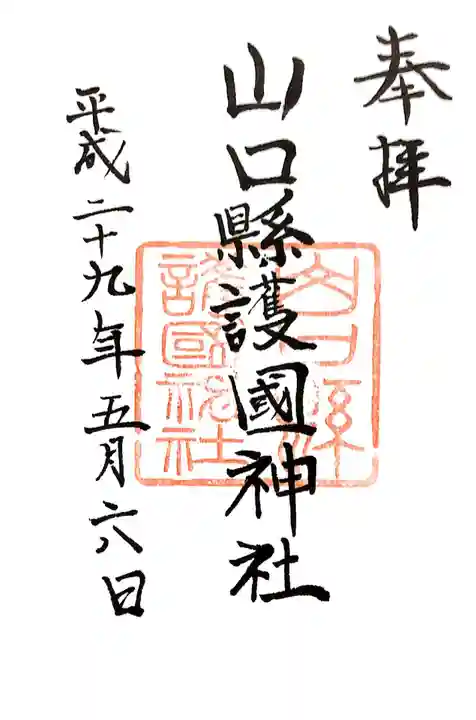 奉拝
山口縣護國神社
山口縣
護國神社
平成二十九年五月六日